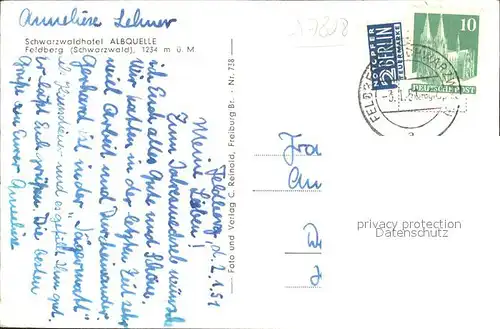 Anneliese Lehner
17858
Schwarzwaldhotel ALBQUELLE
Feldberg (Schwarzwald), 1234 m ü. M.
Feldberg, d. 2.1.51
Meine Lieben!
Zum Jahreswechsel wünsche
ich Euch alles Gute und Schöne.
Wir hatten in der letzten Zeit sehr
viel Arbeit und Durcheinander.
Gerhard ist in der "Jägermatt"
als Hausdiener und es gefällt ihm gut.
Er lässt Euch grüßen. Die besten
Grüße von Eurer Anneliese
Foto und Verlag C. Reinold, Freiburg Br. - Nr. 738
NOTOPFER
2 BERLIN
STEUERMARKE
10
DEUTSCHE POST
FELDBERG SCHWARZW
Fra
An
privacy protection
Datenschutz